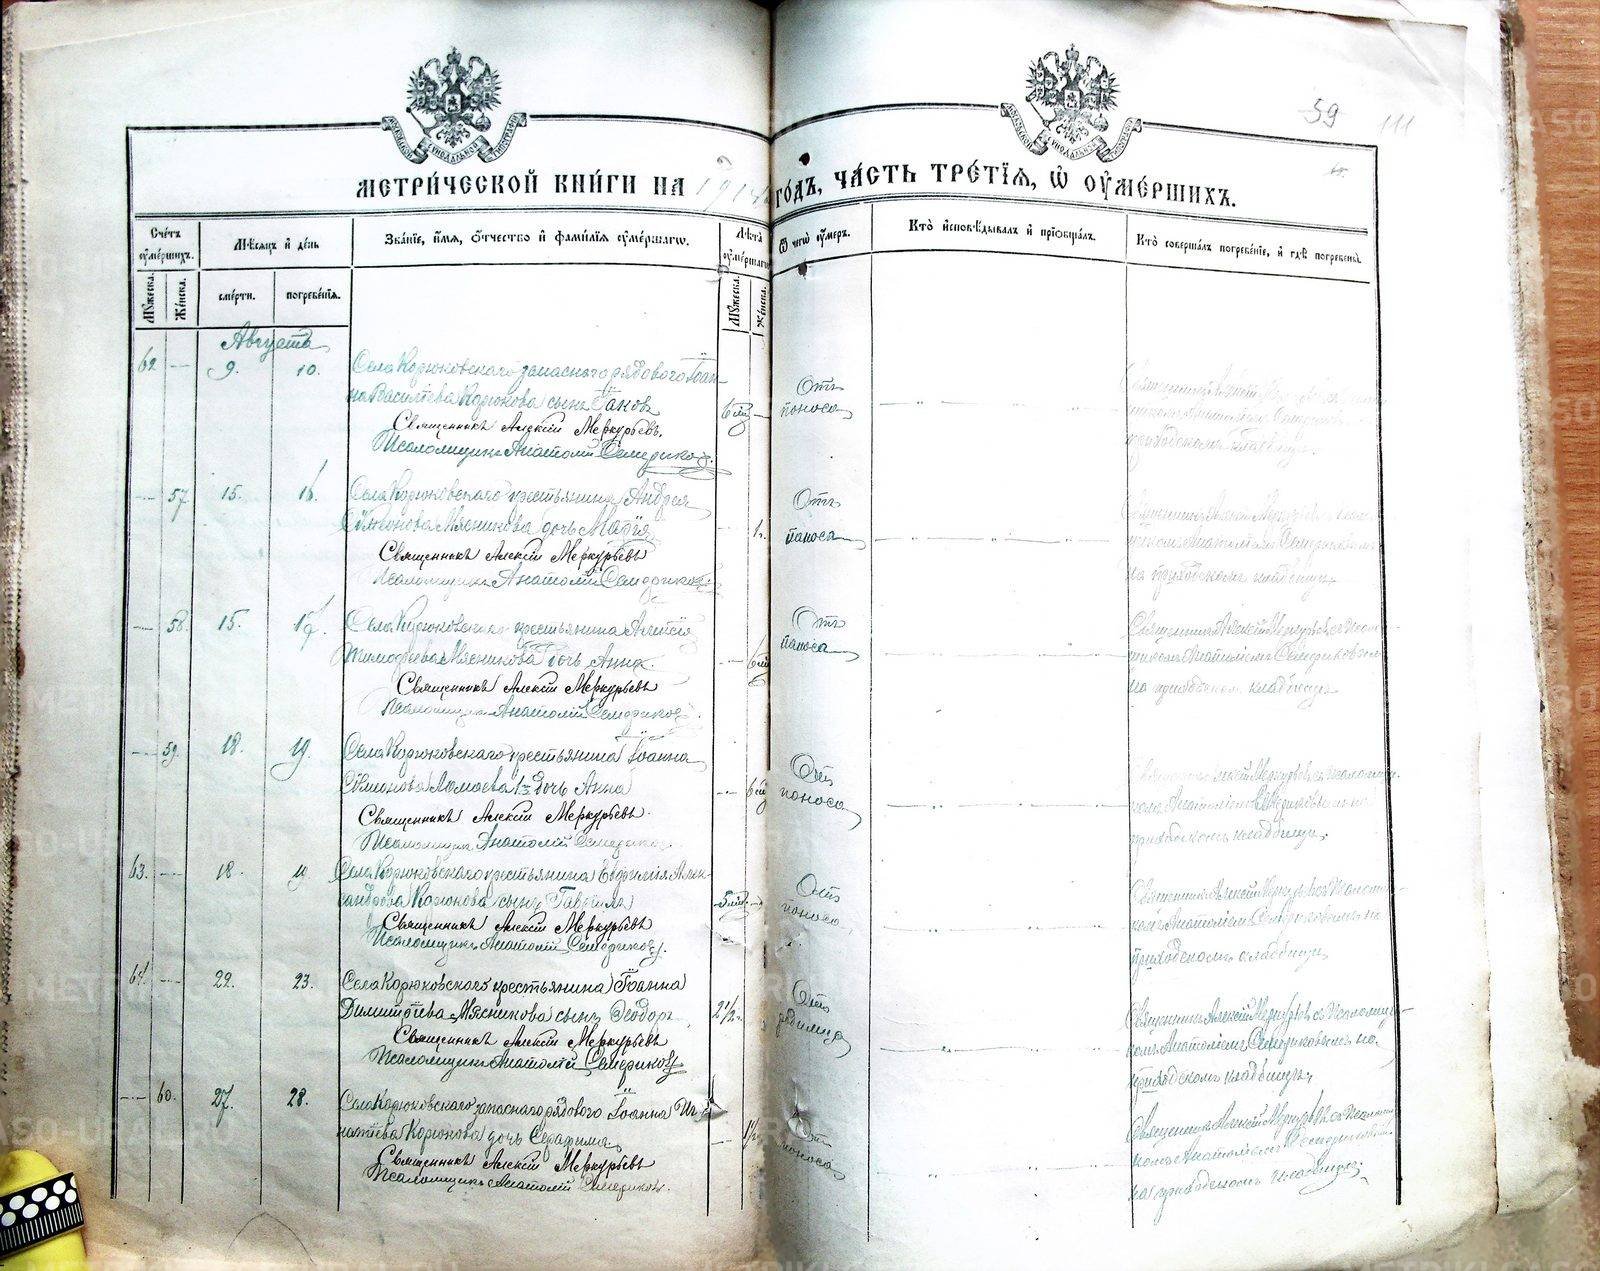 59
111
МЕТРИ́ЧЕСКОЙ КНИ́ГИ НА 1914
ГО́ДЪ, ЧА́СТЬ ТРЕ́ТІЯ, Ѡ ОУМЕ́РШИХЪ.
Сче́тъ оумершихъ.
Мꙋжеска.
Же́нска.
Мѣсяцъ и де́нь
сме́рти.
погребе́нія.
Зва́ніе, и́мя, о́тчество и фами́лія оуме́ршагѡ.
Лѣта оуме́ршагѡ
Мꙋ́жеска.
Же́нска.
Ѿ чегѡ̀ оу́меръ.
Кто̀ и҆сповѣ́дывалъ и прїобща́лъ.
Кто̀ соверша́лъ погребе́ніе, и гдѣ̀ погребены̀.
Августъ
62. — 9. 10. Села Корюковскаго запаснаго рядового Іоан-
на Васильева Корюкова сынъ Іаковъ
6 м. —
Отъ
поноса
Священникъ Алексій Меркурьевъ.
Псаломщикъ Анатолій Семериковъ.
приходскомъ кладбищѣ.
— 57 15. 16. Села Корюковскаго крестьянина Андрея
Симеонова Мясникова дочь Марія
— 1 г.
Отъ
поноса
Священникъ Алексій Меркурьевъ
Псаломщикъ Анатолій Семериковъ
на приходскомъ кладбищѣ.
— 58. 15. Села Корюковскаго крестьянина Алексія
Тимофеева Мясникова дочь Анна.
— 6 м.
Отъ
поноса
Священникъ Алексій Меркурьевъ
Псаломщикъ Анатолій Семериковъ.
Священникъ Алексій Меркурьевъ съ псалом-
щикомъ Анатоліемъ Семериковымъ
на приходскомъ кладбищѣ
— 59. 18. 19. Села Корюковскаго крестьянина Іоанна
Симеонова дочь Анна
— 6 м.
Отъ
поноса
Священникъ Алексій Меркурьевъ.
Псаломщикъ Анатолій Семериковъ.
Священникъ Алексій Меркурьевъ съ псаломщи-
комъ Анатоліемъ Семериковымъ на
приходскомъ кладбищѣ.
63. — 18. 19. Села Корюковскаго крестьянина Евфимія Алек-
сандрова Корюкова сынъ Гавріилъ
5 м. —
Отъ
поноса.
Священникъ Алексій Меркурьевъ
Псаломщикъ Анатолій Семериковъ.
Священникъ Алексій Меркурьевъ съ псаломщи-
комъ Анатоліемъ Семериковымъ на
приходскомъ кладбищѣ
64. — 22. 23. Села Корюковскаго крестьянина Іоанна
Димитріева Мясникова сынъ Ѳеодоръ
2 1/2 г.
Отъ
родимца
Священникъ Алексій Меркурьевъ
Псаломщикъ Анатолій Семериковъ
Священникъ Алексій Меркурьевъ съ псаломщи-
комъ Анатоліемъ Семериковымъ на
приходскомъ кладбищѣ.
— 60. 27. 28. Села Корюковскаго запаснаго рядового Іоанна Иг-
натіева Корюкова дочь Серафима
—
Отъ
поноса
Священникъ Алексій Меркурьевъ
Псаломщикъ Анатолій Семериковъ.
Священникъ Алексій Меркурьевъ съ псаломщи-
комъ Анатоліемъ Семериковымъ
на приходскомъ кладбищѣ.